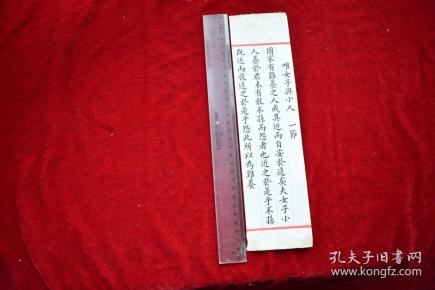 唯女子與小人 一節
國家有難養之人戒其近而自安於遠矣夫女子小
人養於君未有敢不孫而怨者也近之於是乎不孫
既近而復遠之於是乎怨此所以為難養
孔夫子旧书网
www.kongfz.com